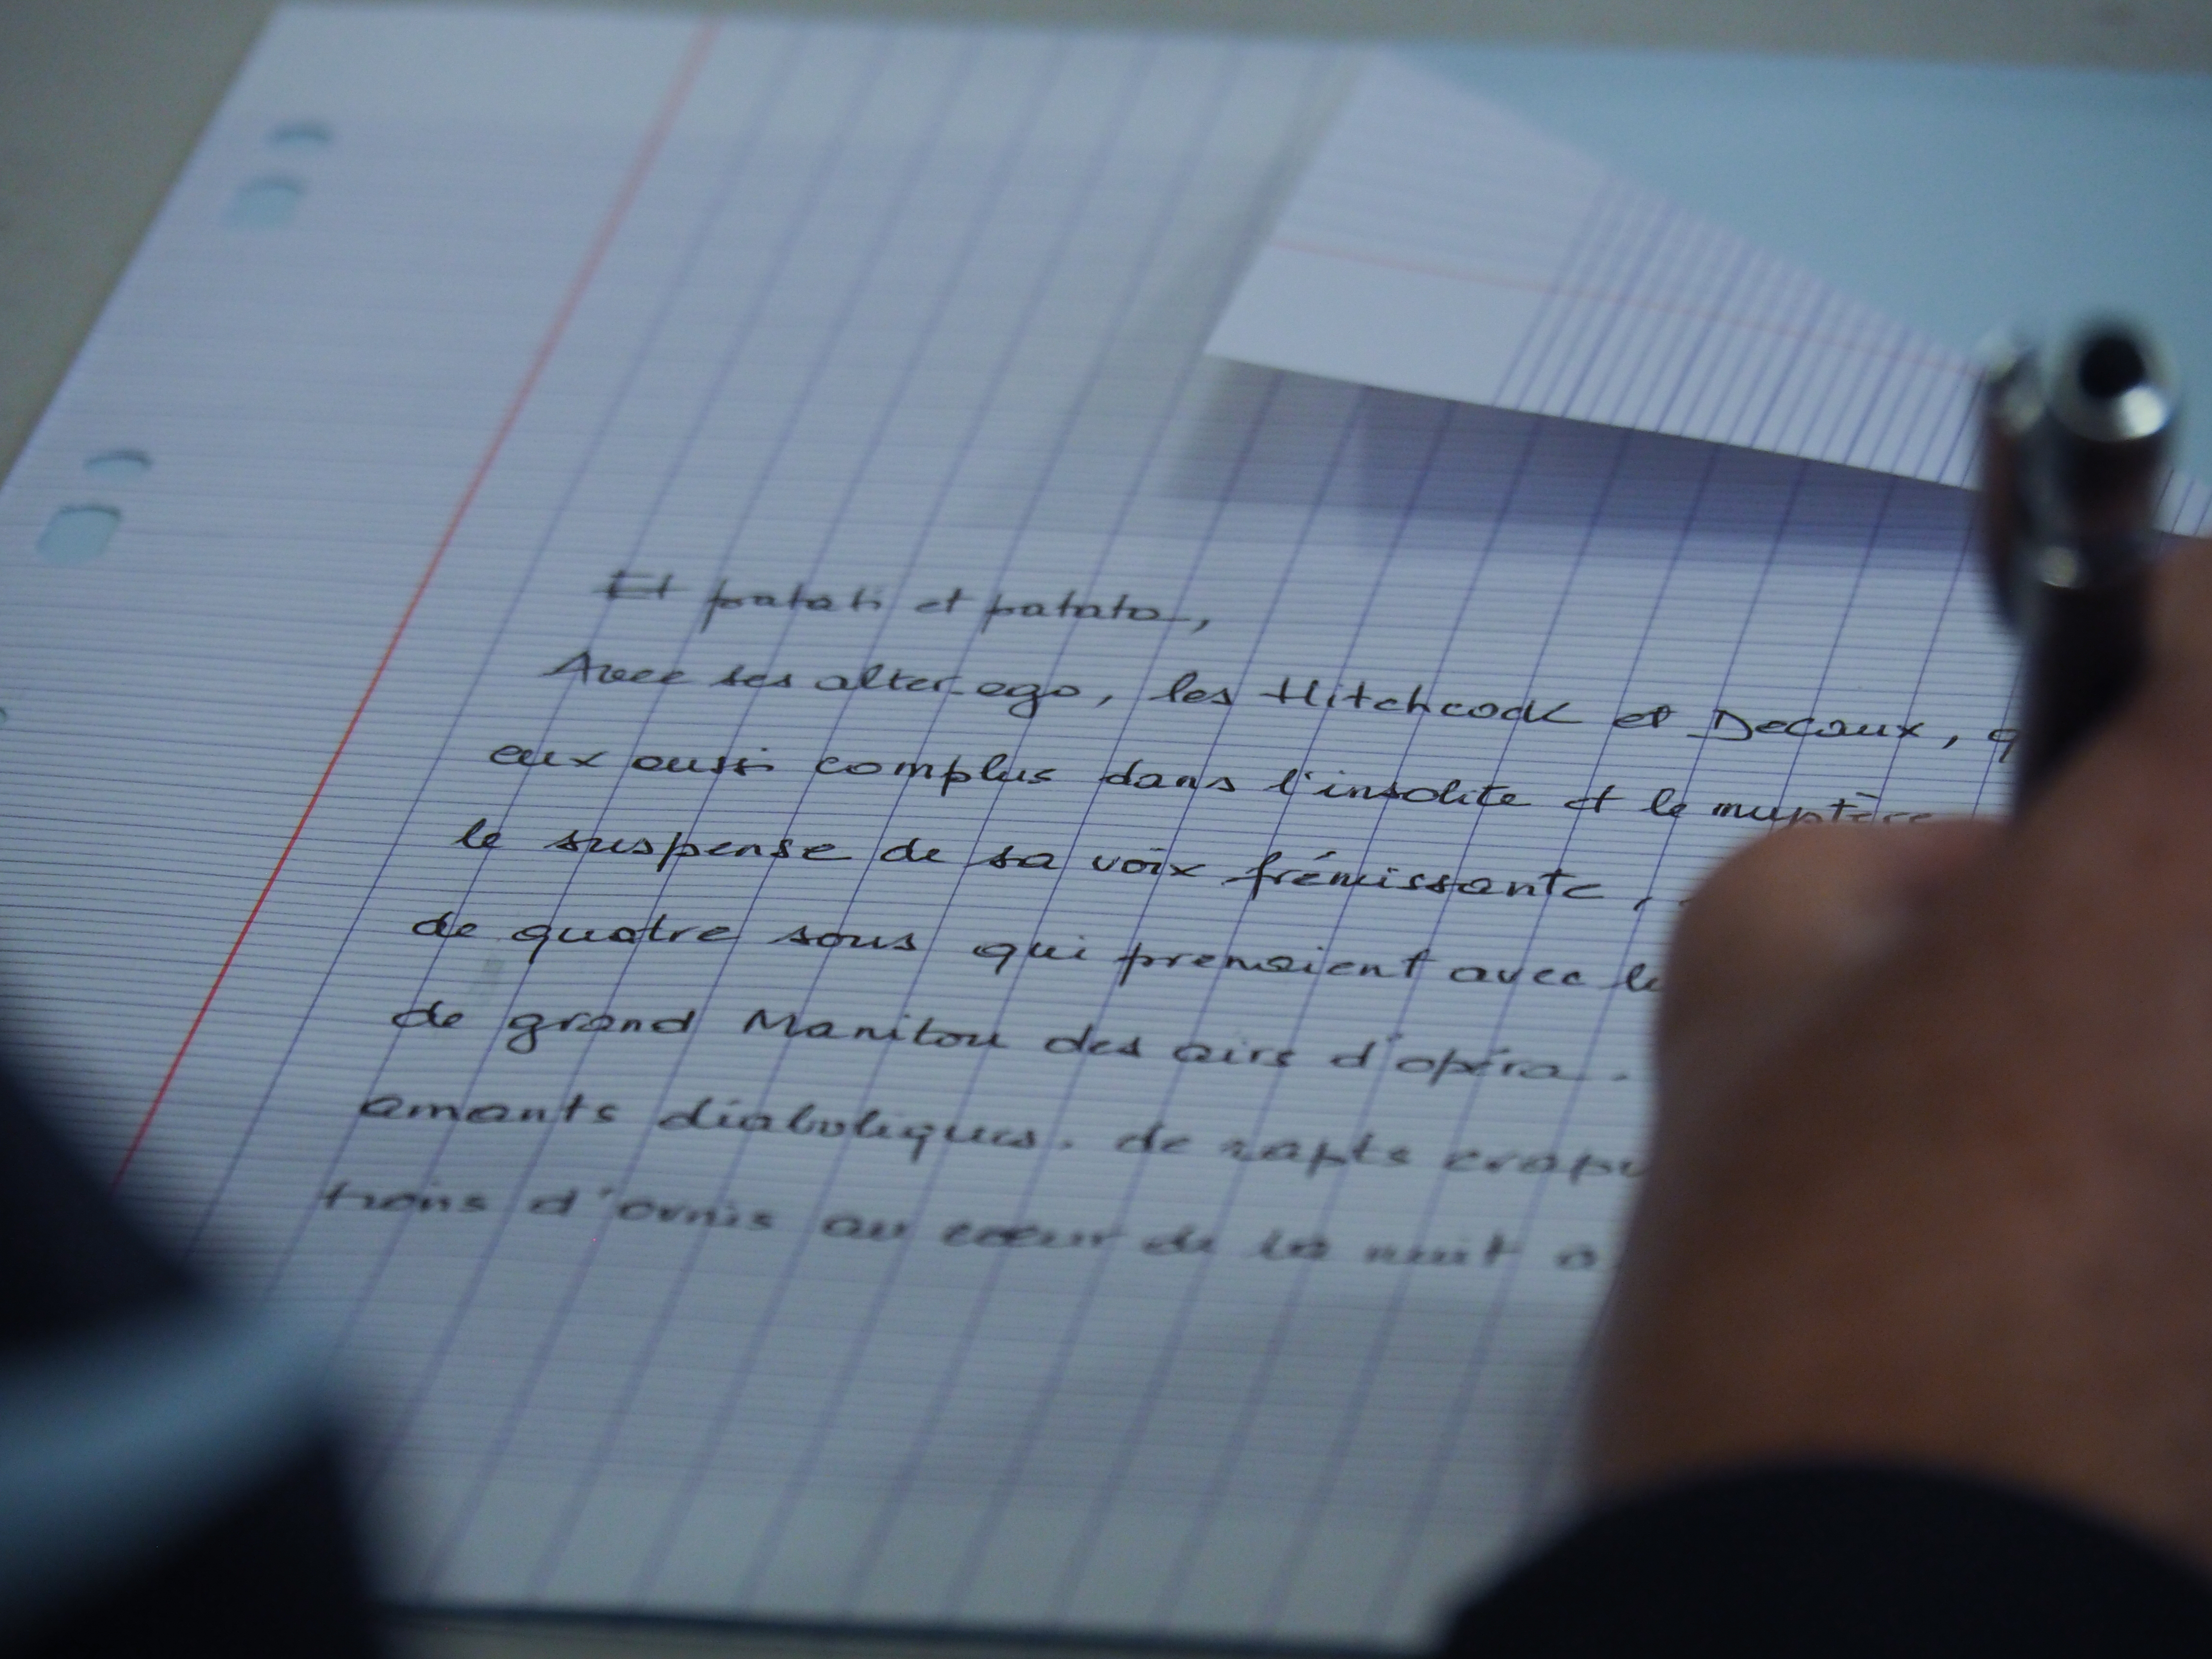 Et patati et patata,
Avec ses alter ego, les Hitchcock et Decaux, q
eux aussi complus dans l'insolite et le mystère
le suspense de sa voix frémissante,
de quatre sous qui prenaient avec le
de grand Manitou des airs d'opéra.
amants diaboliques. de rapts crapu
trons d'ovnis au cœur de la nuit o